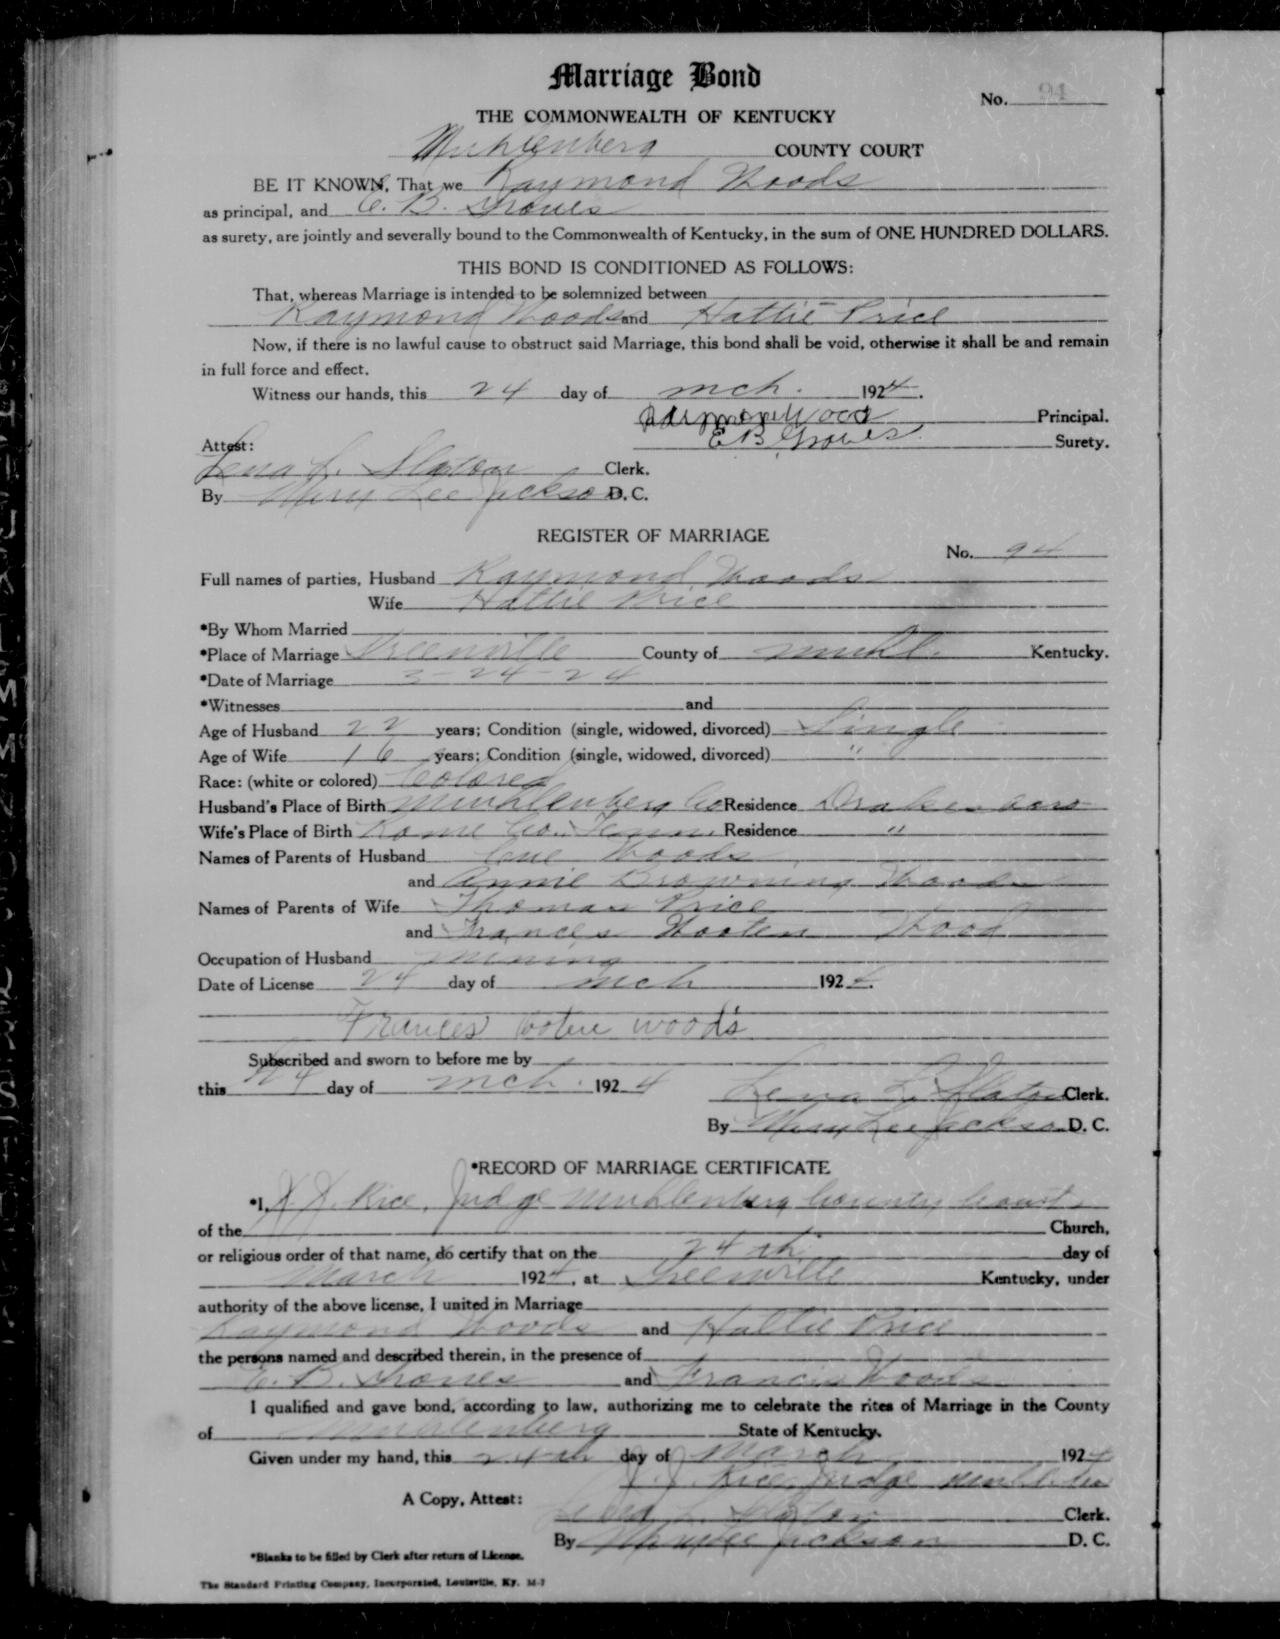 Marriage Bond
No. 94
THE COMMONWEALTH OF KENTUCKY
Muhlenberg COUNTY COURT
BE IT KNOWN, That we Raymond Woods
as principal, and E. B. Groves
as surety, are jointly and severally bound to the Commonwealth of Kentucky, in the sum of ONE HUNDRED DOLLARS.
THIS BOND IS CONDITIONED AS FOLLOWS:
That, whereas Marriage is intended to be solemnized between
Raymond Woods and Hattie Price
Now, if there is no lawful cause to obstruct said Marriage, this bond shall be void, otherwise it shall be and remain
in full force and effect.
Witness our hands, this 24 day of mch. 1924.
Wood Principal.
E B Groves Surety.
Attest:
Lena L. Slaton Clerk.
By Mary Lee Jackson D. C.
REGISTER OF MARRIAGE
No. 94
Full names of parties, Husband Raymond Woods
Wife Hattie Price
*By Whom Married
*Place of Marriage Greenville County of Muhl. Kentucky.
*Date of Marriage 3-24-24
*Witnesses and
Age of Husband 22 years; Condition (single, widowed, divorced) Single
Age of Wife 16 years; Condition (single, widowed, divorced) "
Race: (white or colored) Colored
Husband's Place of Birth Muhlenberg Co Residence Drakesboro
Wife's Place of Birth Co. Tenn. Residence "
Names of Parents of Husband Woods
and Annie Browning Woods
Names of Parents of Wife Thomas Price
and Frances Wooten Wood
Occupation of Husband mining
Date of License 24 day of mch 1924.
Frances woods
Subscribed and sworn to before me by
this 24 day of mch. 1924
Lena L. Slaton Clerk.
By Mary Lee Jackson D. C.
*RECORD OF MARRIAGE CERTIFICATE
*I, J. J. Rice, Judge Muhlenberg County Court
of the Church,
or religious order of that name, do certify that on the 24th day of
March 1924, at Greenville Kentucky, under
authority of the above license, I united in Marriage
Raymond Woods and Hattie Price
the persons named and described therein, in the presence of
E. B. Groves and Francis Woods
I qualified and gave bond, according to law, authorizing me to celebrate the rites of Marriage in the County
of Muhlenberg State of Kentucky.
Given under my hand, this 24th day of March 1924
J. J. Rice Judge Muhl. Co
A Copy, Attest:
Lena L. Slaton Clerk.
By Mary Lee Jackson D. C.
*Blanks to be filled by Clerk after return of License.
The Standard Printing Company, Incorporated, Louisville, Ky. M-7